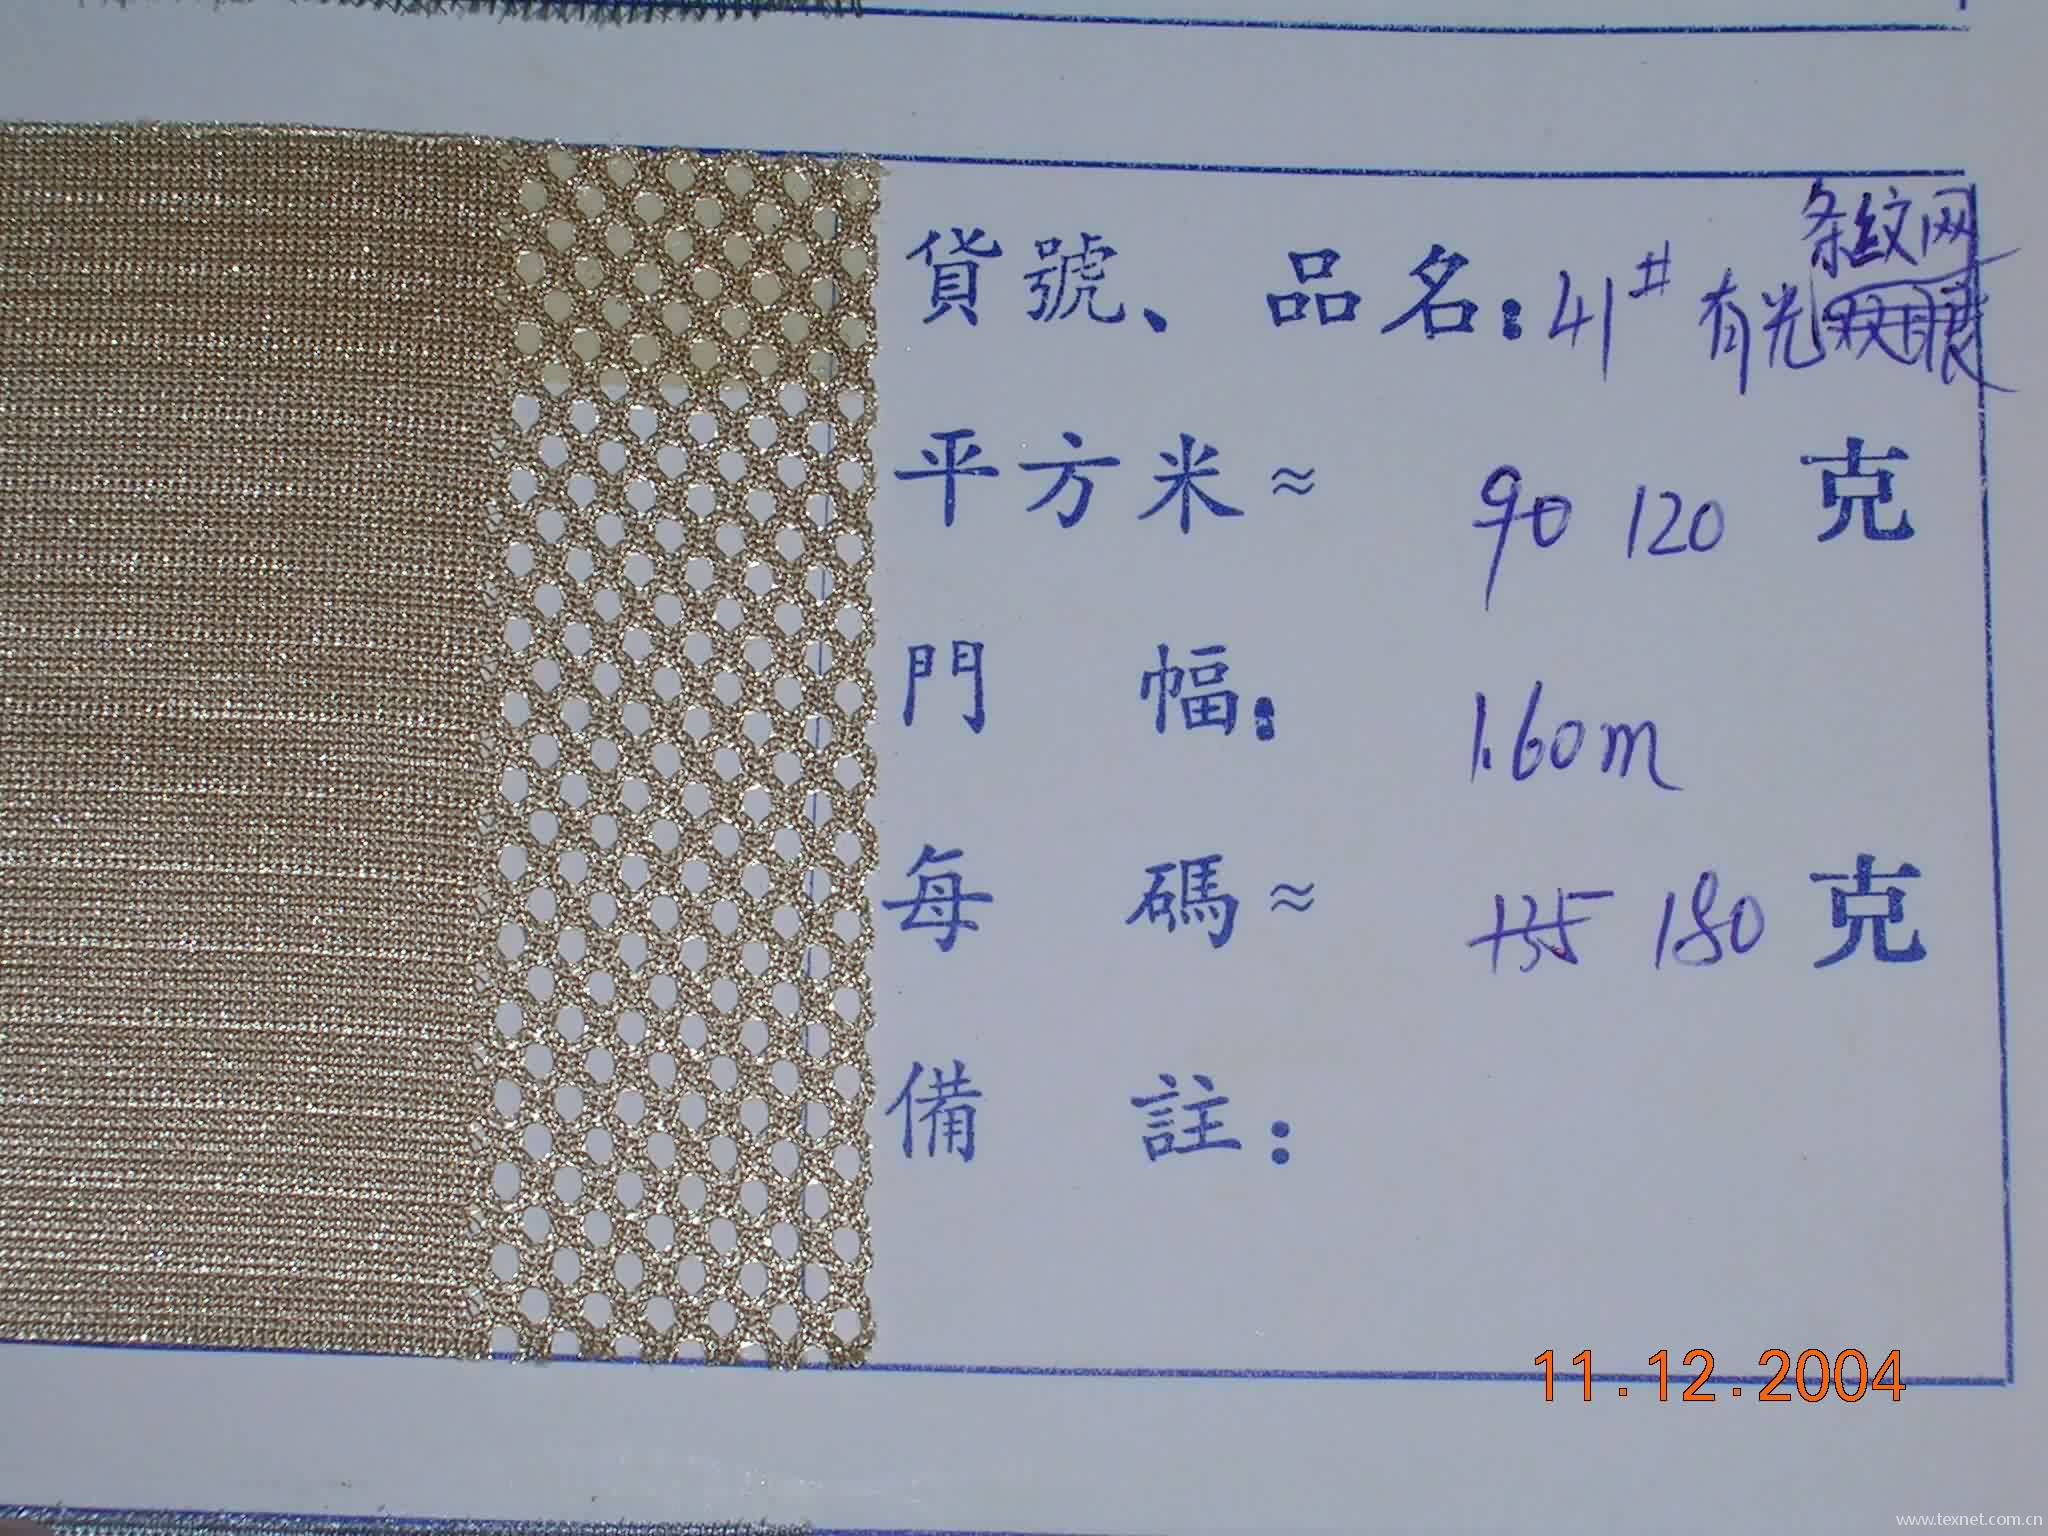 条纹网
貨號、品名:41# 有光双眼
平方米≈ 90 120 克
門幅: 1.60m
每碼≈ 135 180 克
備註:
11.12.2004
www.texnet.com.cn